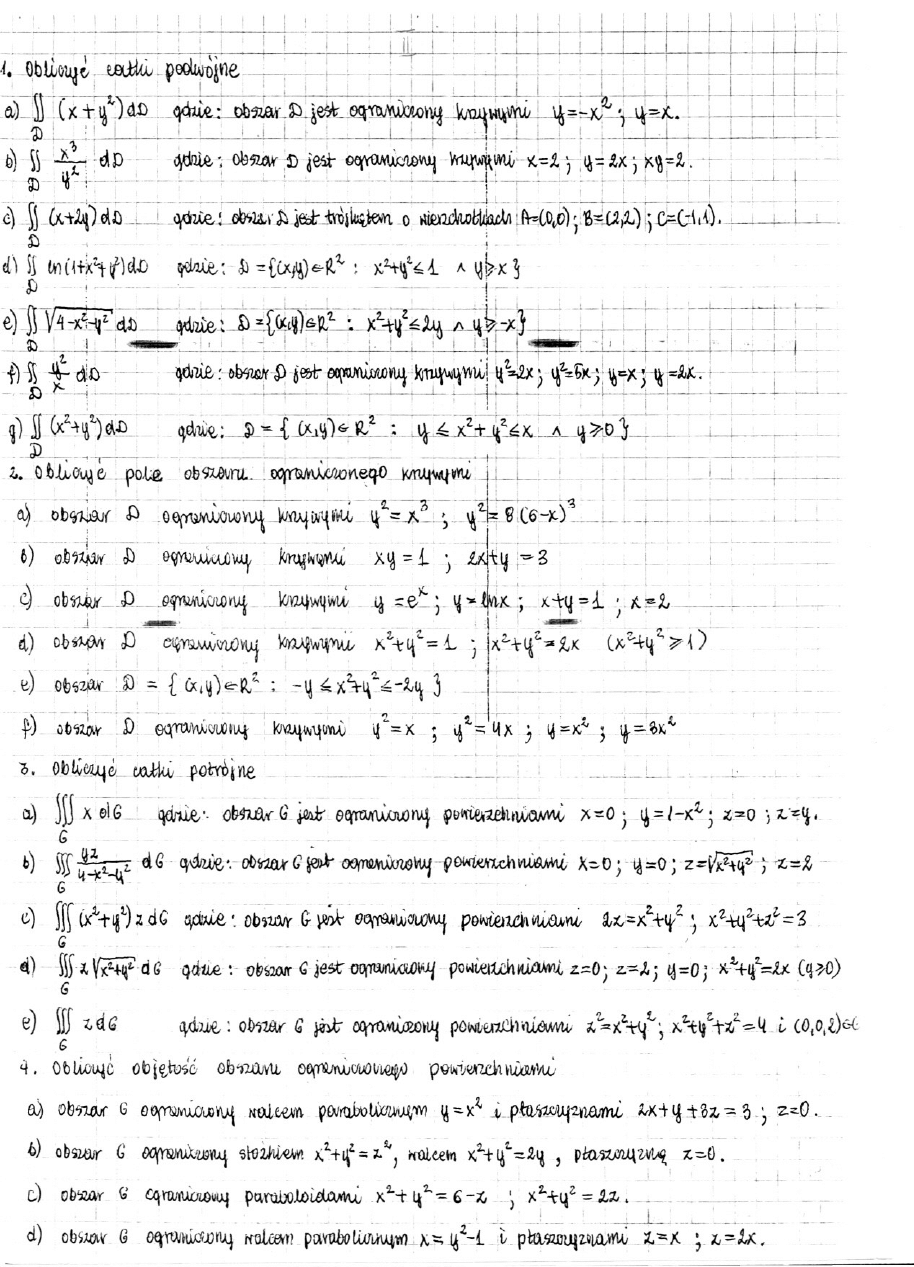 1. Obliczyć całki podwójne
a) ∬_D (x+y²)dD gdzie: obszar D jest ograniczony krzywymi y=-x² ; y=x.
b) ∬_D x³/y² dD gdzie: obszar D jest ograniczony krzywymi x=2 ; y=2x ; xy=2.
c) ∬_D (x+2y)dD gdzie: obszar D jest trójkątem o wierzchołkach A=(0,0) ; B=(2,2) ; C=(-1,1).
d) ∬_D ln(1+x²+y²)dD gdzie: D={(x,y)∈R² : x²+y²≤1 ∧ y≥x}
e) ∬_D √(4-x²-y²) dD gdzie: D={(x,y)∈R² : x²+y²≤2y ∧ y≥-x}
f) ∬_D y²/x dD gdzie: obszar D jest ograniczony krzywymi y²=2x ; y²=5x ; y=x ; y=2x.
g) ∬_D (x²+y²)dD gdzie: D={(x,y)∈R² : y≤x²+y²≤x ∧ y≥0}
2. Obliczyć pole obszaru ograniczonego krzywymi
a) obszar D ograniczony krzywymi y²=x³ ; y²=8(6-x)³
b) obszar D ograniczony krzywymi xy=1 ; 2x+y=3
c) obszar D ograniczony krzywymi y=eˣ ; y=lnx ; x+y=1 ; x=2
d) obszar D ograniczony krzywymi x²+y²=1 ; x²+y²=2x (x²+y²≥1)
e) obszar D={(x,y)∈R² : -y≤x²+y²≤-2y}
f) obszar D ograniczony krzywymi y²=x ; y²=4x ; y=x² ; y=3x²
3. Obliczyć całki potrójne
a) ∭_G x dG gdzie: obszar G jest ograniczony powierzchniami x=0 ; y=1-x² ; z=0 ; z=y.
b) ∭_G yz/(4-x²-y²) dG gdzie: obszar G jest ograniczony powierzchniami x=0 ; y=0 ; z=√(x²+y²) ; z=2
c) ∭_G (x²+y²)z dG gdzie: obszar G jest ograniczony powierzchniami 2z=x²+y² ; x²+y²+z²=3
d) ∭_G z√(x²+y²) dG gdzie: obszar G jest ograniczony powierzchniami z=0 ; z=2 ; y=0 ; x²+y²=2x (y≥0)
e) ∭_G z dG gdzie: obszar G jest ograniczony powierzchniami z²=x²+y² ; x²+y²+z²=4 i (0,0,2)∈G
4. Obliczyć objętość obszaru ograniczonego powierzchniami
a) obszar G ograniczony walcem parabolicznym y=x² i płaszczyznami 2x+y+3z=3 ; z=0.
b) obszar G ograniczony stożkiem x²+y²=z², walcem x²+y²=2y, płaszczyzną z=0.
c) obszar G ograniczony paraboloidami x²+y²=6-z ; x²+y²=2z.
d) obszar G ograniczony walcem parabolicznym x=y²-1 i płaszczyznami z=x ; z=2x.